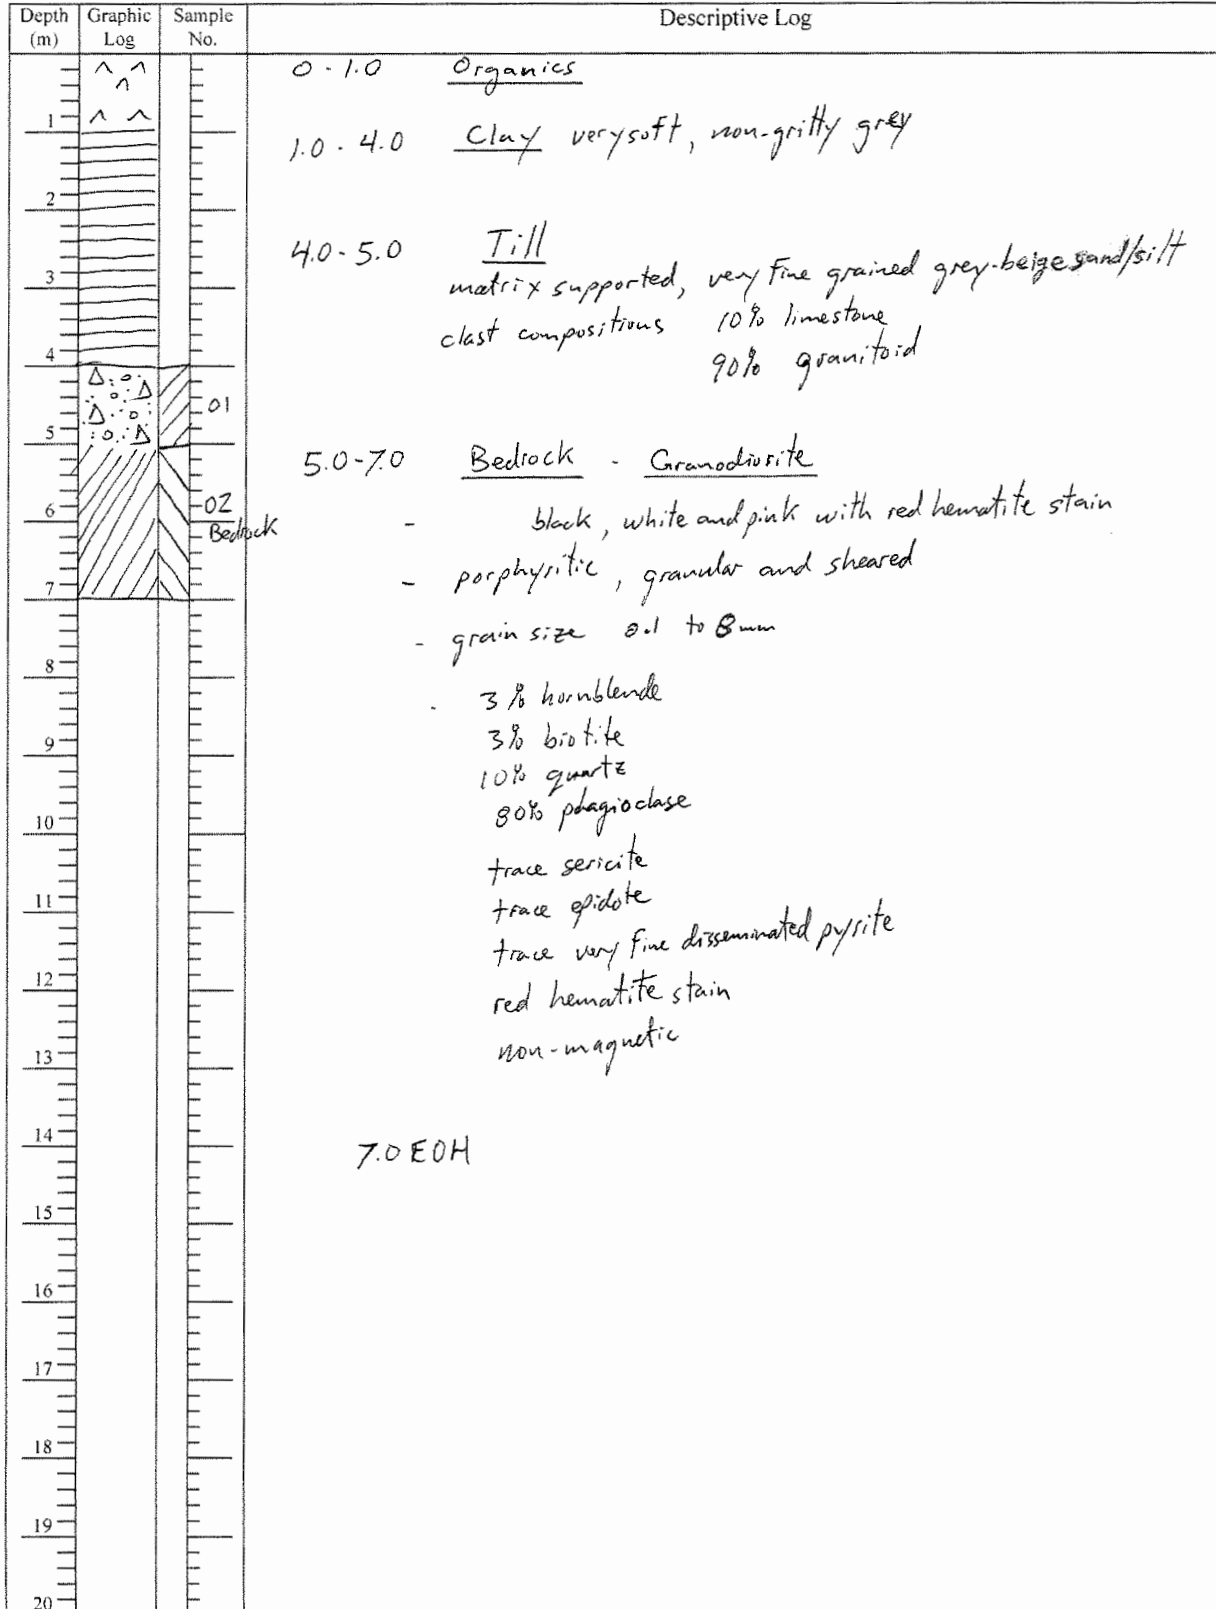 Depth (m) Graphic Log Sample No. Descriptive Log
0 - 1.0 Organics
1
1.0 - 4.0 Clay very soft, non-gritty grey
2
4.0 - 5.0 Till
matrix supported, very fine grained grey-beige sand/silt
3
clast compositions 10% limestone
90% granitoid
4
01
5
5.0-7.0 Bedrock - Granodiorite
02
6
Bedrock
- black, white and pink with red hematite stain
- porphyritic, granular and sheared
7
- grain size 0.1 to 8mm
8
- 3% hornblende
3% biotite
9
10% quartz
80% plagioclase
10
trace sericite
11
trace epidote
trace very fine disseminated pyrite
12
red hematite stain
13
non-magnetic
14
7.0 EOH
15
16
17
18
19
20